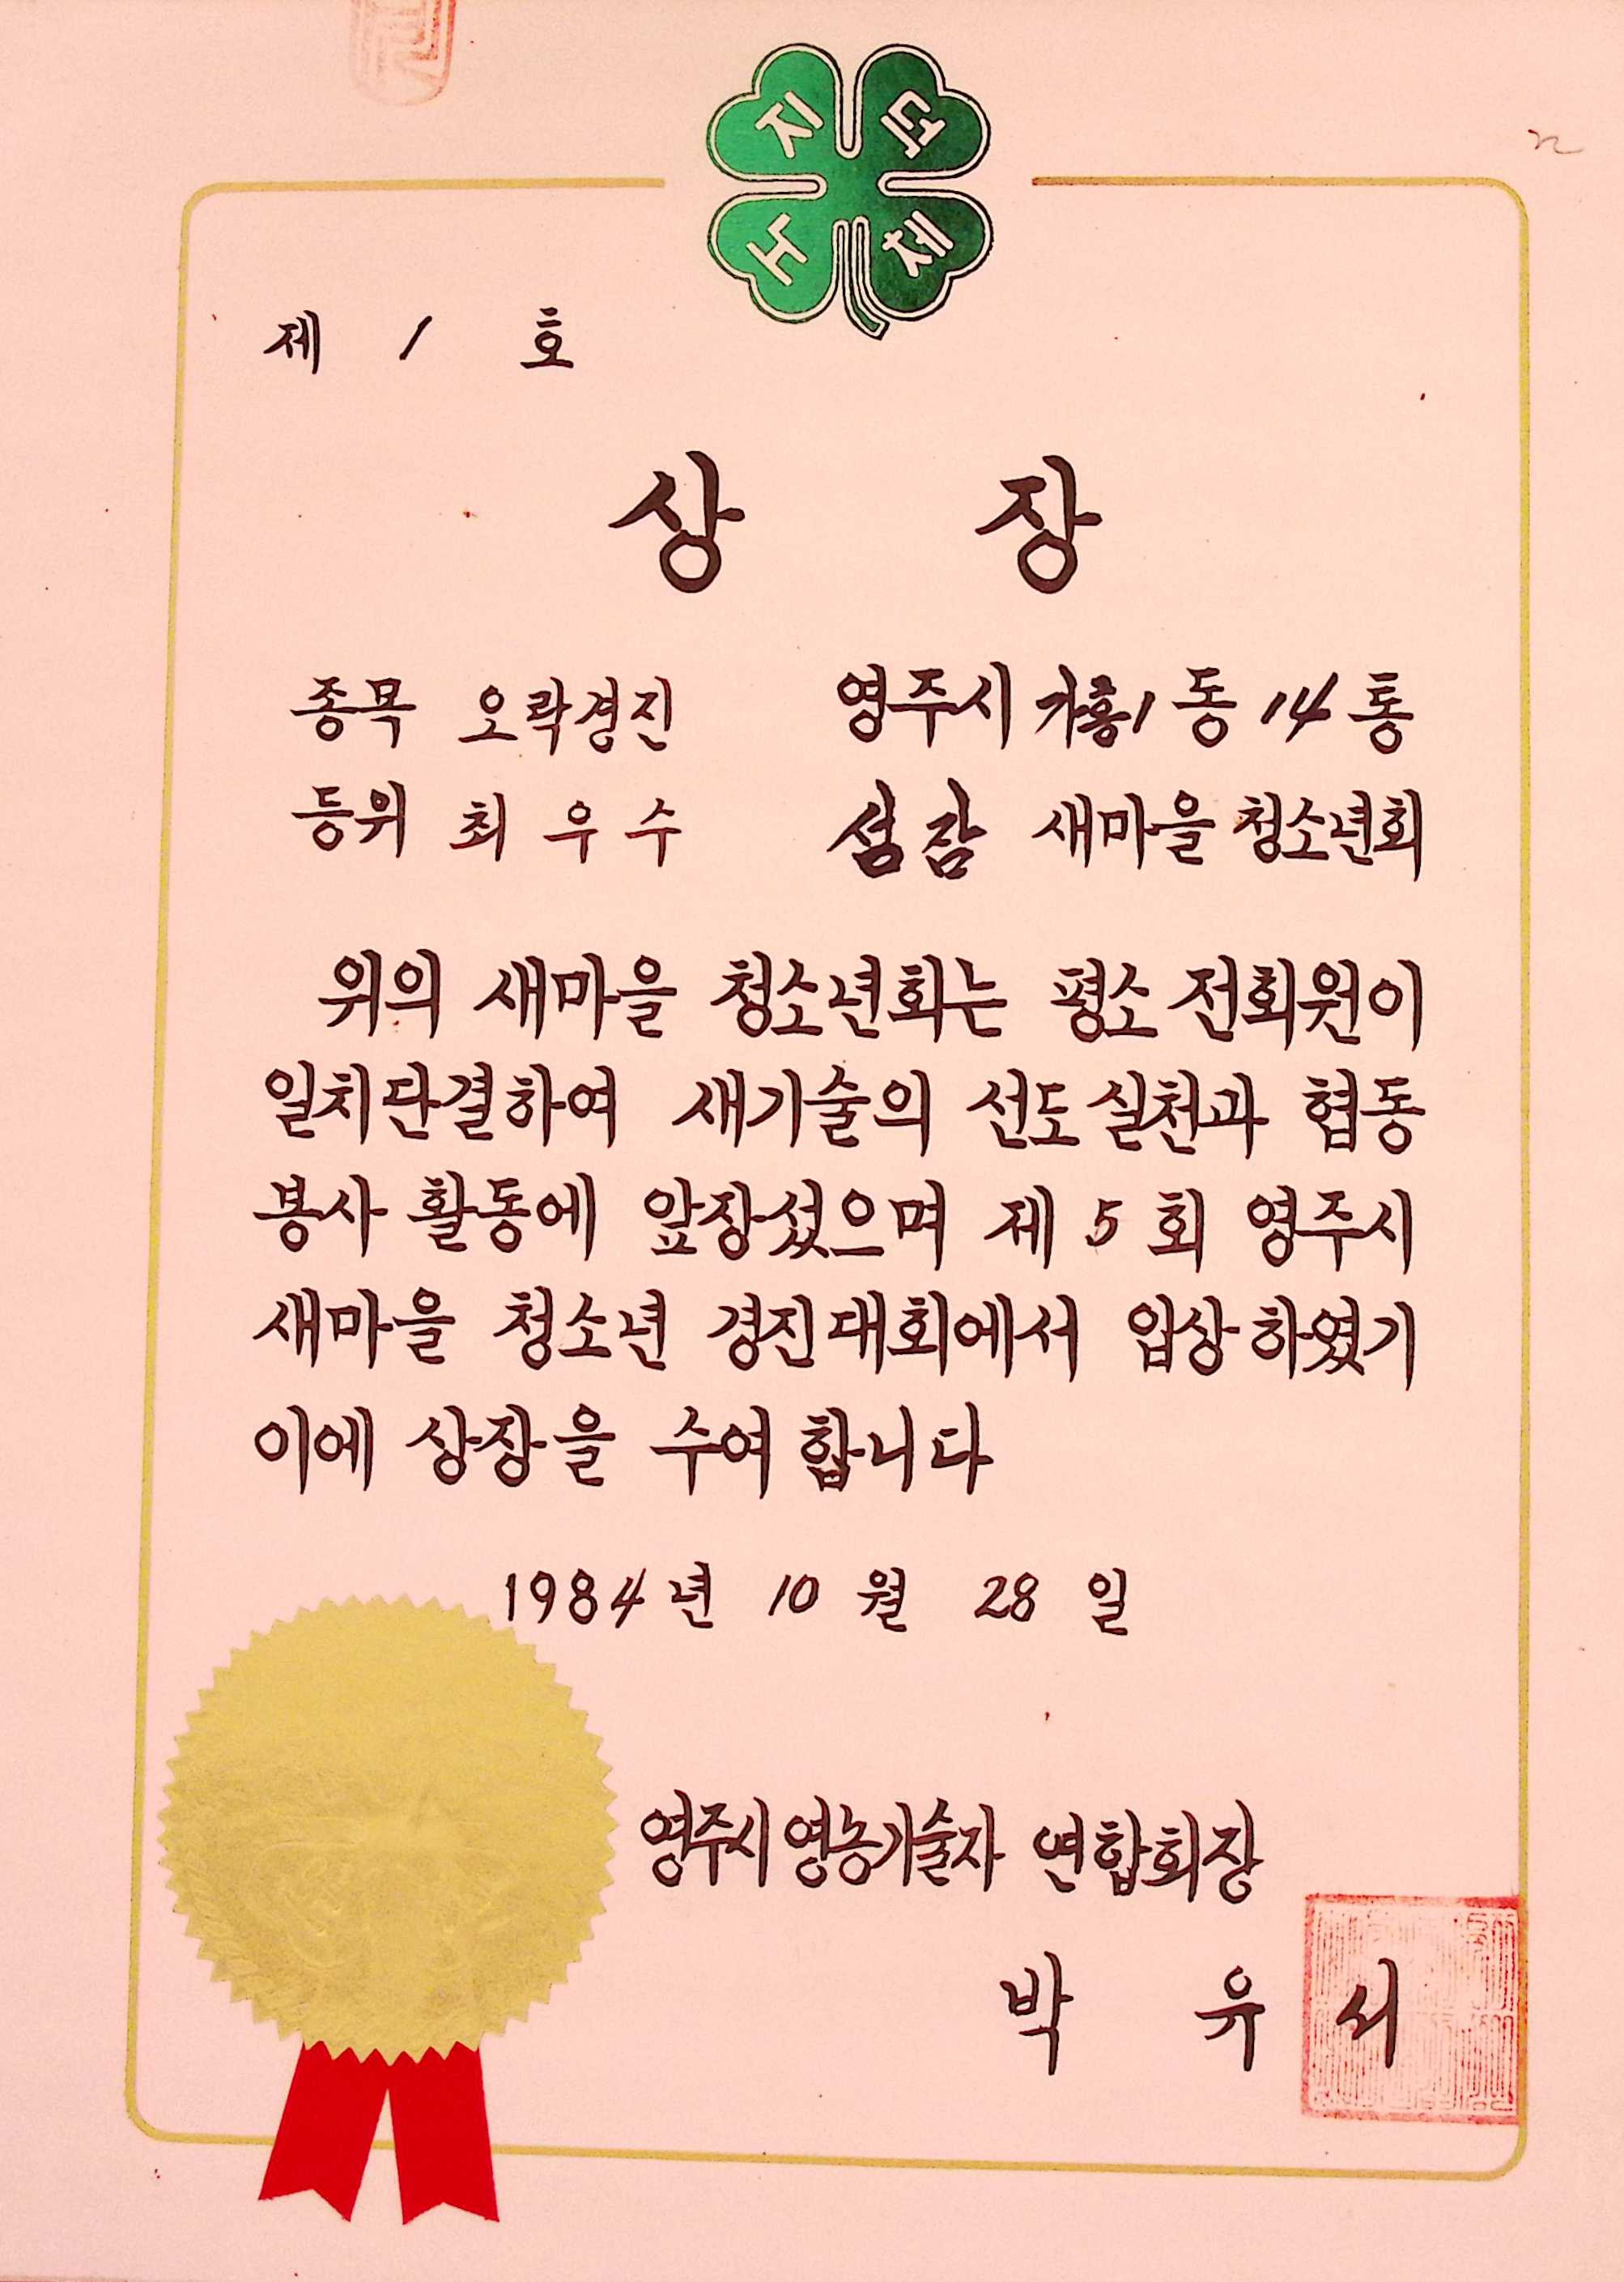 지 덕
노 체
제 1 호
상 장
종목 오락경진 영주시 가흥1동 14통
등위 최우수 섬감 새마을 청소년회
위의 새마을 청소년회는 평소 전회원이
일치단결하여 새기술의 선도 실천과 협동
봉사 활동에 앞장섰으며 제 5 회 영주시
새마을 청소년 경진대회에서 입상하였기
이에 상장을 수여합니다
1984년 10월 28일
영주시 영농기술자 연합회장
박 유 서